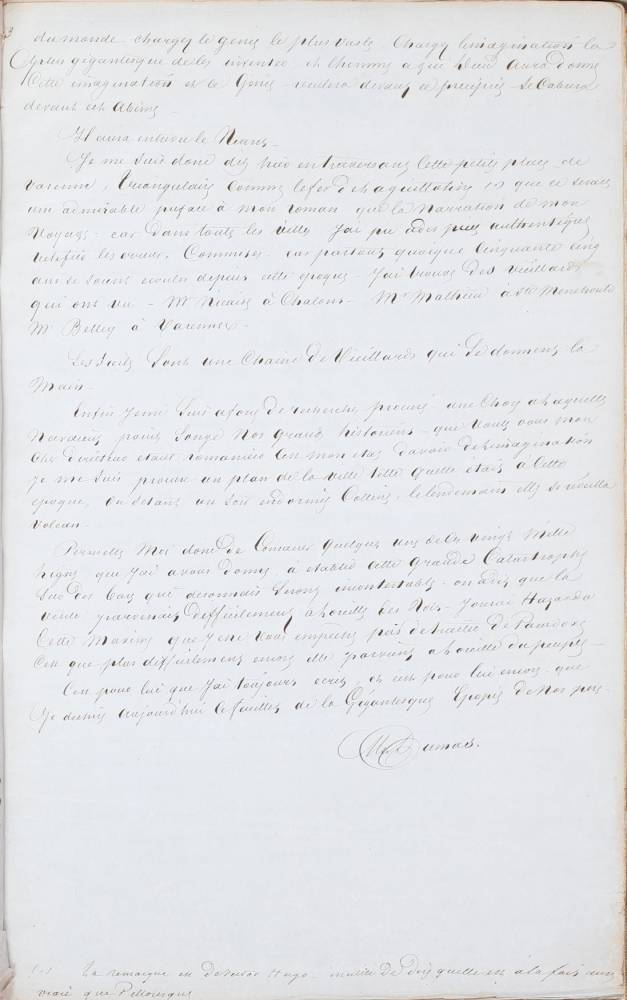 du monde chargez le génie le plus vaste. Chargez l'imagination la
plus gigantesque de les inventer et l'homme à qui Dieu aura donné
Cette imagination et le Génie reculera devant ce précipice se Cabrera
devant cet Abîme
Il aura entrevu le Néant.
Je me suis donc dis hier en traversant Cette petite place de
Varenne, triangulaire Comme le fer de la guillotine (1) que ce serait
une admirable préface à mon roman que la Narration de mon
Voyage car dans toutes les villes j'ai pu à des yeux authentiques
vérifier les Commises car partout quoique Cinquante cinq
ans se soient écoulés depuis cette époque J'ai trouvé des vieillards
qui ont vu Mr Nicaise à Chalons Mr Mathieu à Ste Menehould
Mr Bellay à Varennes.
Les Siècles Sont une Chaîne de Vieillards qui Se donnent la
Main.
Enfin Je me Suis à force de recherche procuré une Chose à laquelle
N'avaient point Songé Nos grands historiens que voulez vous mon
Cher Directeur étant romancier C'est mon état d'avoir de l'imagination
Je me suis procuré un plan de la ville telle quelle était à Cette
époque, où s'étant un soir endormie Colline, le lendemain elle se réveilla
Volcan.
Permettez Moi donc de Consacrer quelques unes de ces vingt Mille
lignes que J'ai à vous donner à établir cette grande Catastrophe
Sur des bases qui désormais Seront incontestables on a dit que la
vérité parvenait difficilement à l'oreille des Rois J'oserai Hazarder
Cette Maxime que Je ne vous empêche pas de traiter de Paradoxe
C'est que plus difficilement encore elle parvient à l'oreille du peuple
C'est pour lui que J'ai toujours écrit, et c'est pour lui encore que
Je destine aujourd'hui ce feuillet de la Gigantesque Epopée de Nos pères
Alex Dumas.
(1) La remarque est de Victor Hugo inutile de dire qu'elle est à la fois aussi
vraie que Pittoresque